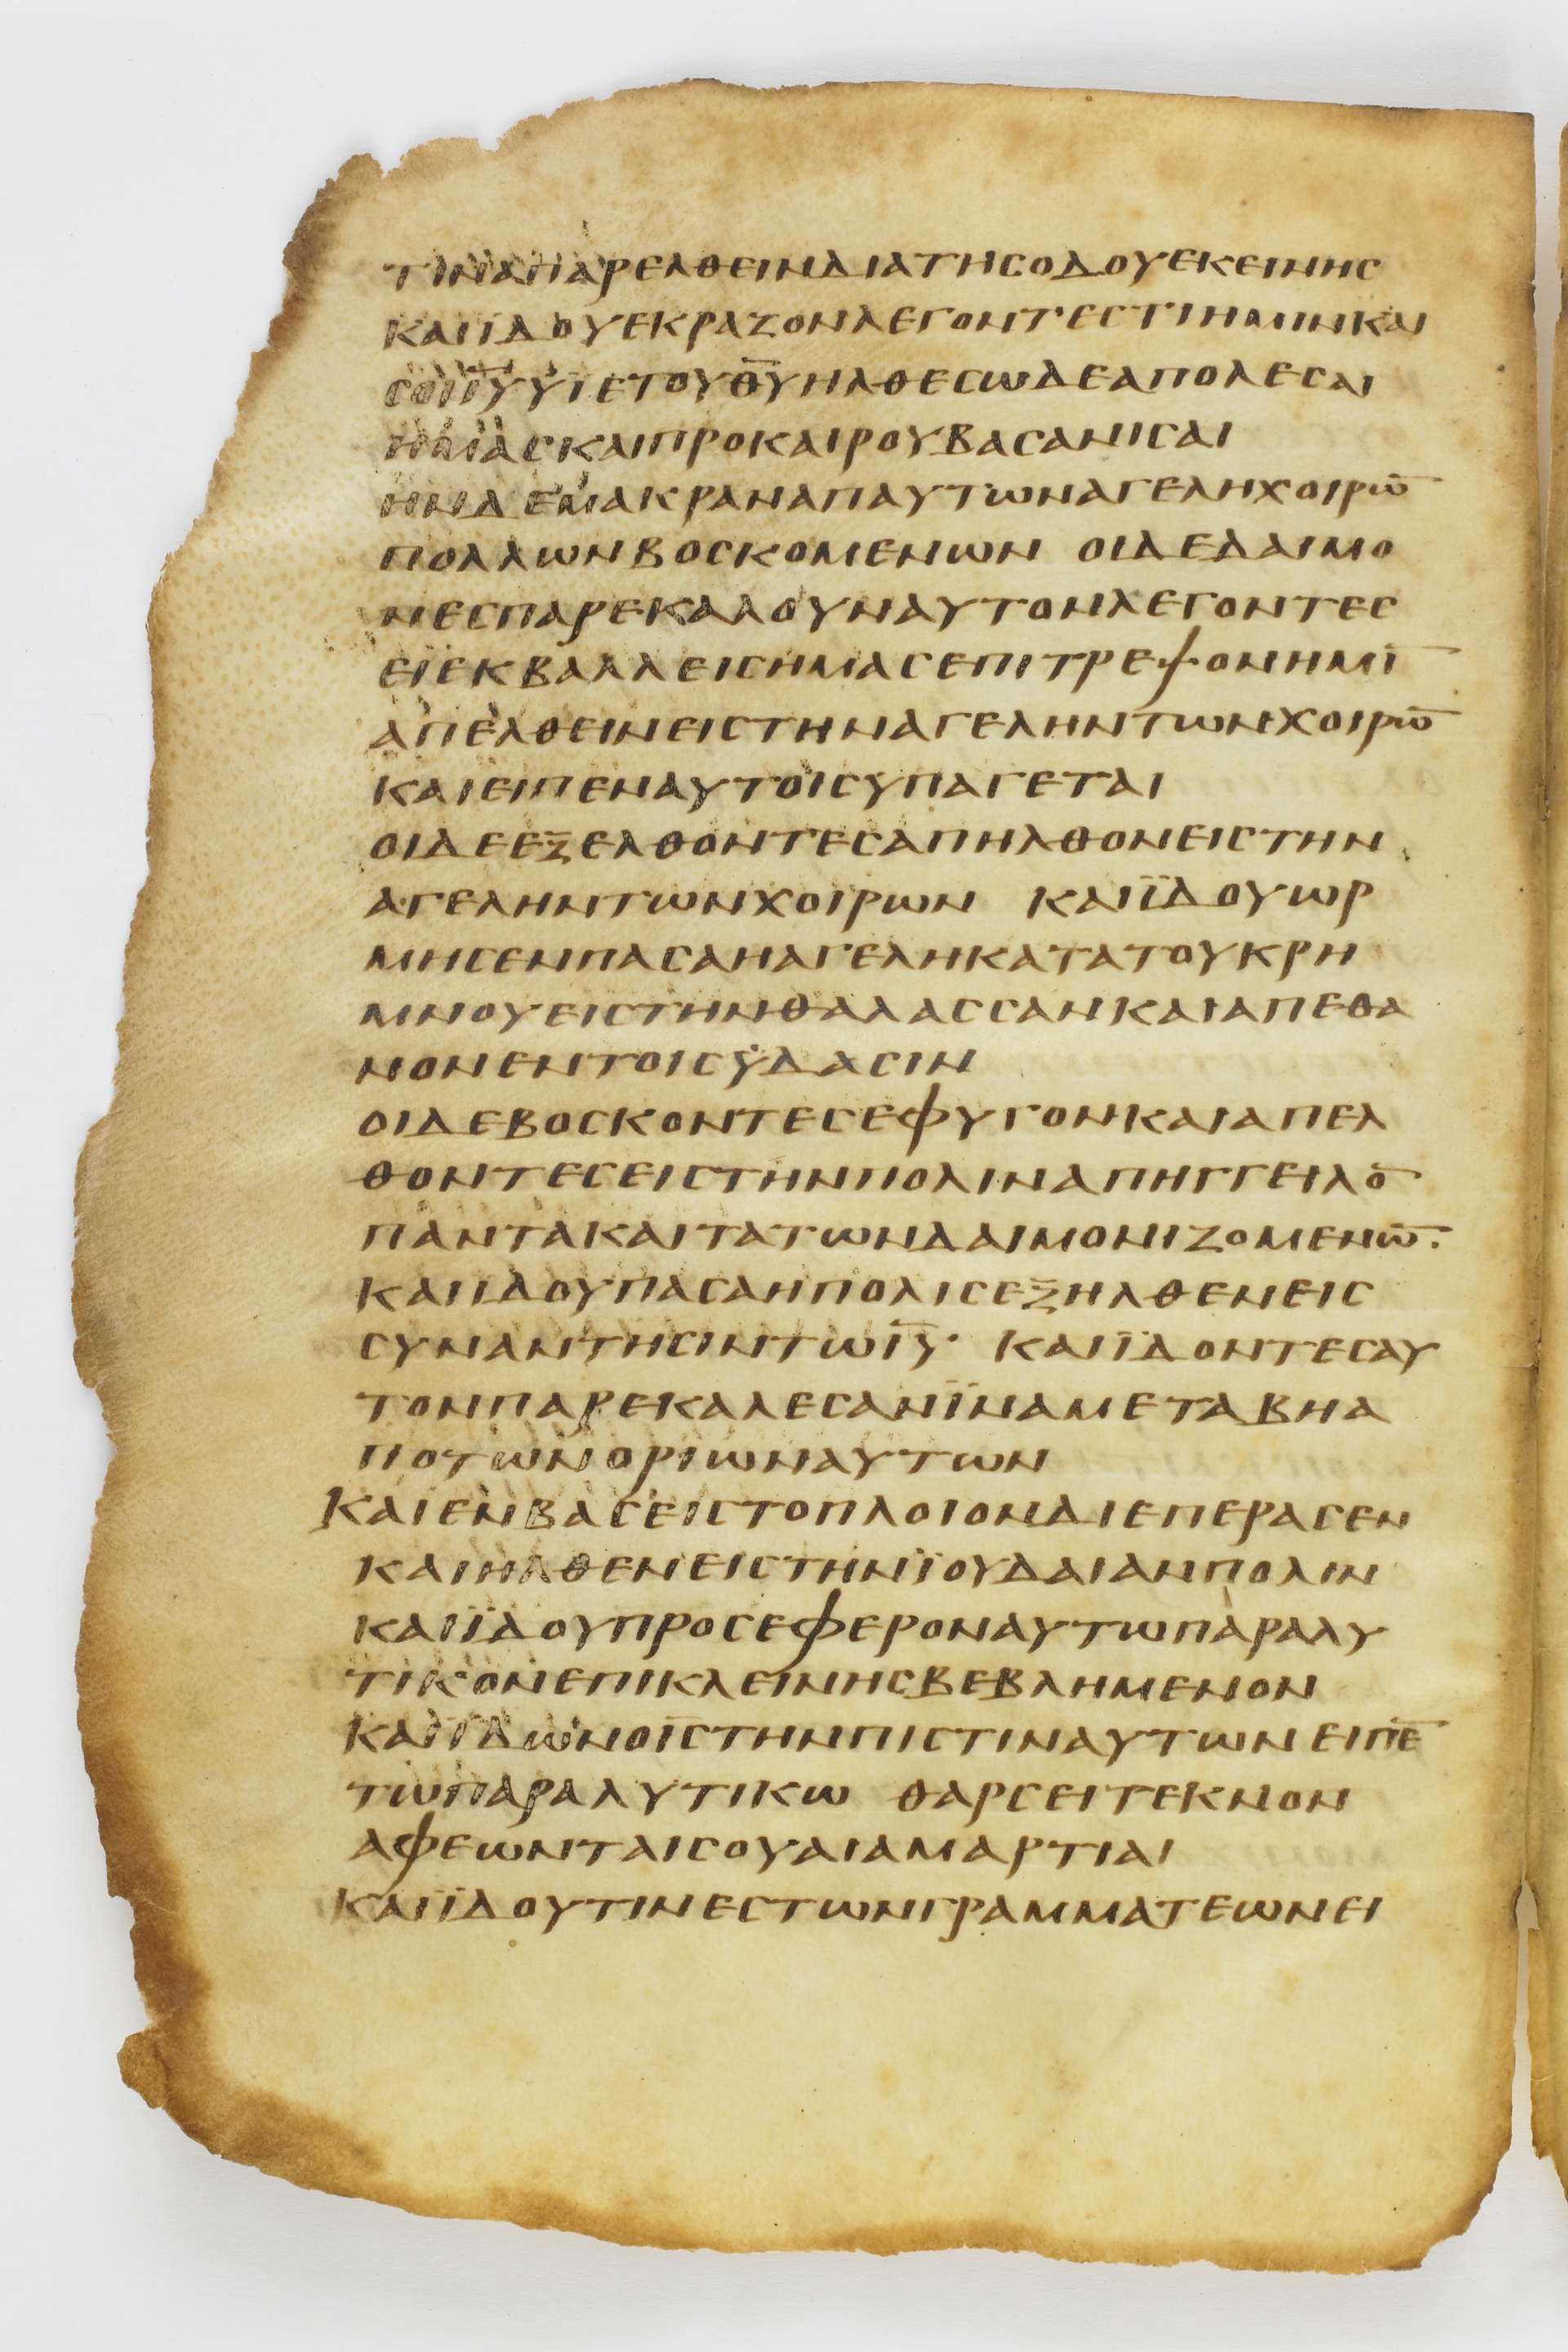 ΤΙΝΑΠΑΡΕΛΘΕΙΝΔΙΑΤΗϹΟΔΟΥΕΚΕΙΝΗϹ
ΚΑΙΪΔΟΥΕΚΡΑΖΟΝΛΕΓΟΝΤΕϹΤΙΗΜΙΝΚΑΙ
ϹΟΙΙ̅Υ̅ΥΙΕΤΟΥΘ̅Υ̅ΗΛΘΕϹΩΔΕΑΠΟΛΕϹΑΙ
ΗΜΑϹΚΑΙΠΡΟΚΑΙΡΟΥΒΑϹΑΝΙϹΑΙ
ΗΝΔΕΜΑΚΡΑΝΑΠΑΥΤΩΝΑΓΕΛΗΧΟΙΡΩ̅
ΠΟΛΛΩΝΒΟϹΚΟΜΕΝΩΝ ΟΙΔΕΔΑΙΜΟ
ΝΕϹΠΑΡΕΚΑΛΟΥΝΑΥΤΟΝΛΕΓΟΝΤΕϹ
ΕΙΕΚΒΑΛΛΕΙϹΗΜΑϹΕΠΙΤΡΕΨΟΝΗΜΙ̅
ΑΠΕΛΘΕΙΝΕΙϹΤΗΝΑΓΕΛΗΝΤΩΝΧΟΙΡΩ̅
ΚΑΙΕΙΠΕΝΑΥΤΟΙϹΥΠΑΓΕΤΑΙ
ΟΙΔΕΕΞΕΛΘΟΝΤΕϹΑΠΗΛΘΟΝΕΙϹΤΗΝ
ΑΓΕΛΗΝΤΩΝΧΟΙΡΩΝ ΚΑΙΪΔΟΥΩΡ
ΜΗϹΕΝΠΑϹΑΗΑΓΕΛΗΚΑΤΑΤΟΥΚΡΗ
ΜΝΟΥΕΙϹΤΗΝΘΑΛΑϹϹΑΝΚΑΙΑΠΕΘΑ
ΝΟΝΕΝΤΟΙϹΥΔΑϹΙΝ
ΟΙΔΕΒΟϹΚΟΝΤΕϹΕΦΥΓΟΝΚΑΙΑΠΕΛ
ΘΟΝΤΕϹΕΙϹΤΗΝΠΟΛΙΝΑΠΗΓΓΕΙΛΟ̅
ΠΑΝΤΑΚΑΙΤΑΤΩΝΔΑΙΜΟΝΙΖΟΜΕΝΩ̅.
ΚΑΙΙΔΟΥΠΑϹΑΗΠΟΛΙϹΕΞΗΛΘΕΝΕΙϹ
ϹΥΝΑΝΤΗϹΙΝΤΩΙ̅Υ̅· ΚΑΙΪΔΟΝΤΕϹΑΥ
ΤΟΝΠΑΡΕΚΑΛΕϹΑΝΪΝΑΜΕΤΑΒΗΑ
ΠΟΤΩΝΟΡΙΩΝΑΥΤΩΝ
ΚΑΙΕΝΒΑϹΕΙϹΤΟΠΛΟΙΟΝΔΙΕΠΕΡΑϹΕΝ
ΚΑΙΗΛΘΕΝΕΙϹΤΗΝΪΟΥΔΑΙΑΝΠΟΛΙΝ
ΚΑΙΪΔΟΥΠΡΟϹΕΦΕΡΟΝΑΥΤΩΠΑΡΑΛΥ
ΤΙΚΟΝΕΠΙΚΛΕΙΝΗϹΒΕΒΛΗΜΕΝΟΝ
ΚΑΙΪΔΩΝΟΙ̅Ϲ̅ΤΗΝΠΙϹΤΙΝΑΥΤΩΝΕΙΠΕ̅
ΤΩΠΑΡΑΛΥΤΙΚΩ ΘΑΡϹΕΙΤΕΚΝΟΝ
ΑΦΕΩΝΤΑΙϹΟΥΑΙΑΜΑΡΤΙΑΙ
ΚΑΙΪΔΟΥΤΙΝΕϹΤΩΝΓΡΑΜΜΑΤΕΩΝΕΙ